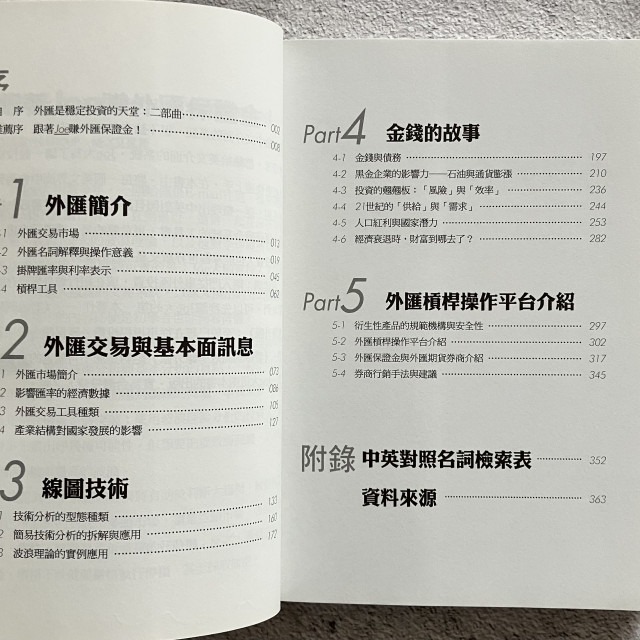 序
序 外匯是穩定投資的天堂：二部曲 007
推薦序 跟著Joe賺外匯保證金！ 008
1 外匯簡介
-1 外匯交易市場 013
-2 外匯名詞解釋與操作意義 019
-3 掛牌匯率與利率表示 045
-4 槓桿工具 062
2 外匯交易與基本面訊息
1 外匯市場簡介 073
2 影響匯率的經濟數據 086
3 外匯交易工具種類 105
4 產業結構對國家發展的影響 127
3 線圖技術
1 技術分析的型態種類 133
2 簡易技術分析的拆解與應用 160
3 波浪理論的實例應用 172
Part4 金錢的故事
4-1 金錢與債務 197
4-2 黑金企業的影響力——石油與通貨膨漲 210
4-3 投資的翹翹板：「風險」與「效率」 236
4-4 21世紀的「供給」與「需求」 244
4-5 人口紅利與國家潛力 253
4-6 經濟衰退時，財富到哪去了？ 282
Part5 外匯槓桿操作平台介紹
5-1 衍生性產品的規範機構與安全性 297
5-2 外匯槓桿操作平台介紹 302
5-3 外匯保證金與外匯期貨券商介紹 317
5-4 券商行銷手法與建議 345
附錄 中英對照名詞檢索表 352
資料來源 363